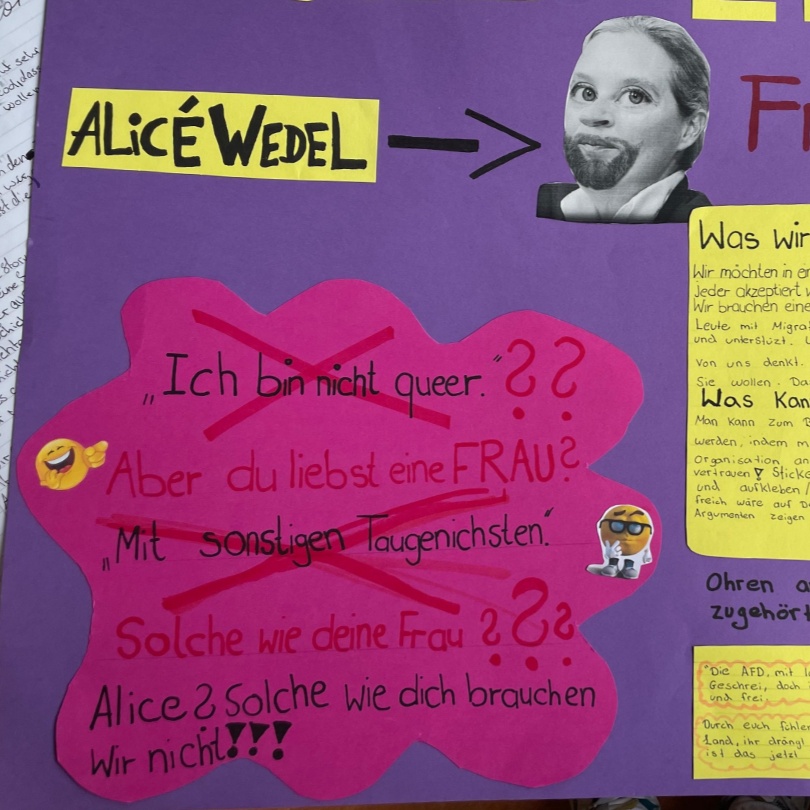 ALiCÉ WEDEL
Fr
„Ich bin nicht queer.“??
Aber du liebst eine FRAU?
„Mit sonstigen Taugenichsten.“
Solche wie deine Frau ???
Alice? Solche wie dich brauchen
Wir nicht!!!
Was wir
Wir möchten in
Jeder akzeptiert
Wir brauchen eine
Leute mit Migra
und unterstüzt.
von uns denkt.
Sie wollen. Da
Was Kan
Man Kann zum B
werden, indem m
Organisation an
vertrauen! Sticke
und aufkleben/
freich wäre auf D
Argumenten zeigen
Ohren a
zugehört
"Die AFD, mit l
Geschrei, doch
und frei.
Durch euch fühlen
Land, ihr drängt
ist das jetzt